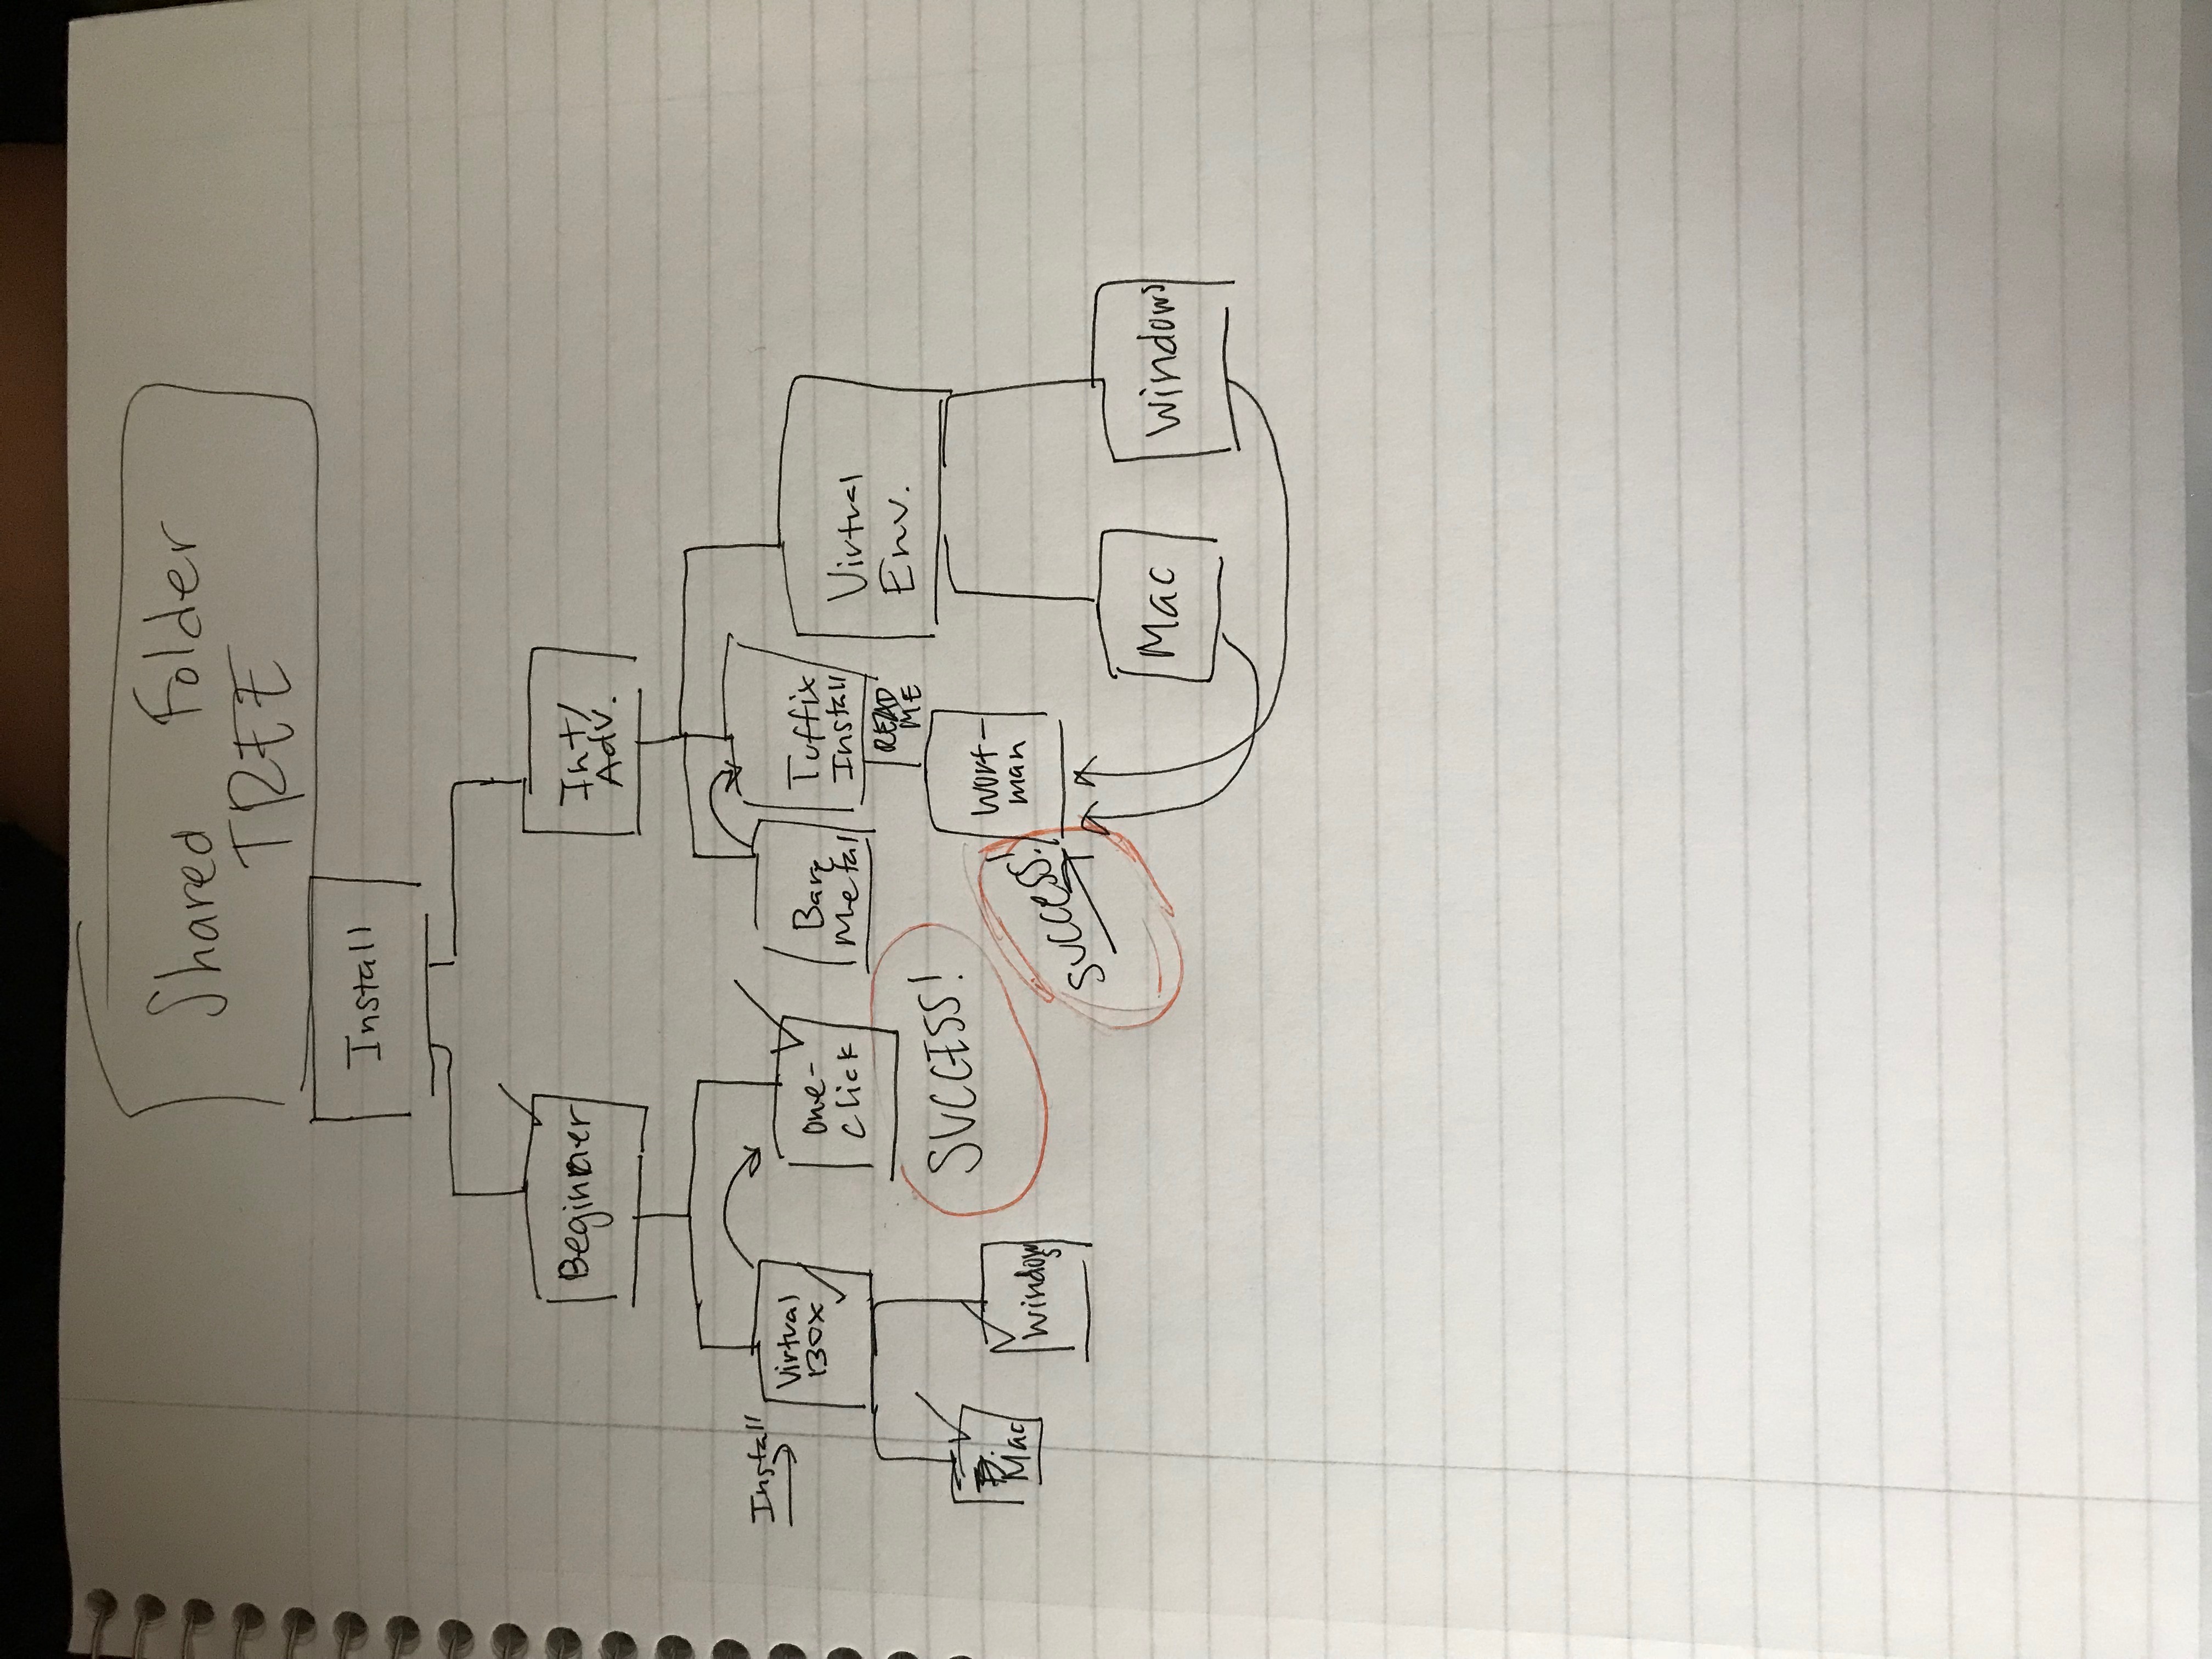 Shared Folder
TREE
Install
Beginner
Int/
Adv.
Install
Virtual
Box
One-
Click
Bare
Metal
Tuffix
Install
READ
ME
Virtual
Env.
SUCCESS!
Mac
Windows
Wort-
man
SUCCESS!
Mac
Windows